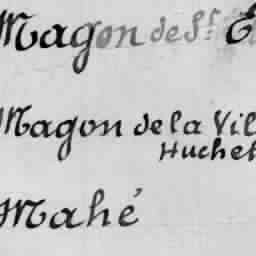 Magon de St. E
Magon de la Vil
Huchet
Mahé